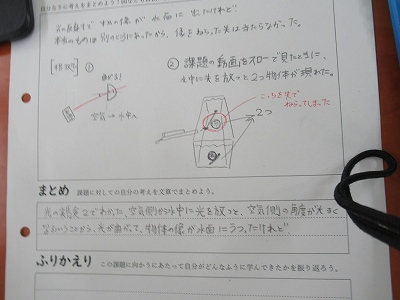 自分なりの考えをまとめよう
光の反射で 物体の像が水面に出たけれど
本当のものは別のところにあったから、像をねらった矢は当たらなかった。
[現状] ①
曲がる!
空気→水中へ
② 課題の動画をスローで見たときに、
水中に矢を放つと2つ物体が現れた。
こっちを矢で
ねらってしまった
2つ
まとめ 課題に対しての自分の考えを文章でまとめよう。
光の実験2でわかった、空気側から水中に光を放つと、空気側の角度が大きく
なるということから、光が曲がって、物体の像が水面にうつったけれど
ふりかえり この課題に向かうにあたって自分がどんなふうに学んできたかを振り返ろう。